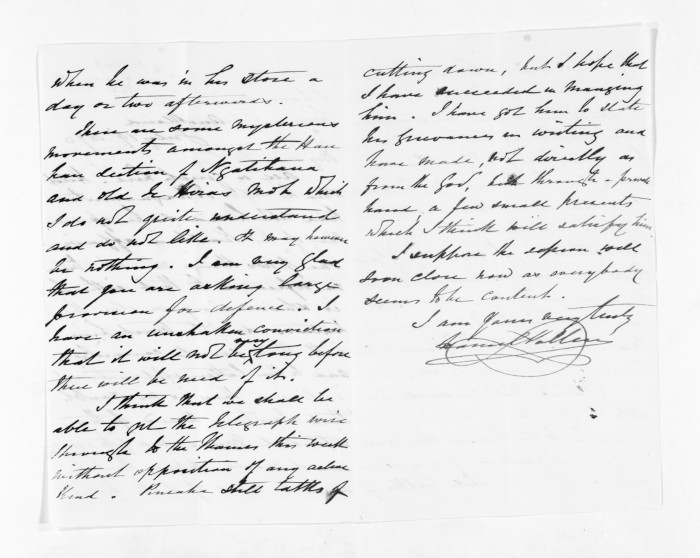 When he was in his store a
day or two afterwards.
There are some mysterious
movements amongst the Hau
hau section of Ngatihaua
and old Te Hiras Mob which
I do not quite understand
and do not like. It may however
be nothing. I am very glad
that you are asking large
provision for defence. I
have an unshaken conviction
that it will not be very long before
there will be need of it.
I think that we shall be
able to get the Telegraph wire
through to the Thames this week
without opposition of any active
kind. still talks of
cutting down, but I hope that
I have succeeded in managing
him. I have got him to state
his grievances in writing and
have made, not directly as
from the Gov, but through a private
hand a few small presents
which I think will satisfy him.
I suppose the session will
soon close now as everybody
seems to be content.
I am Yours very truly
Daniel Pollen